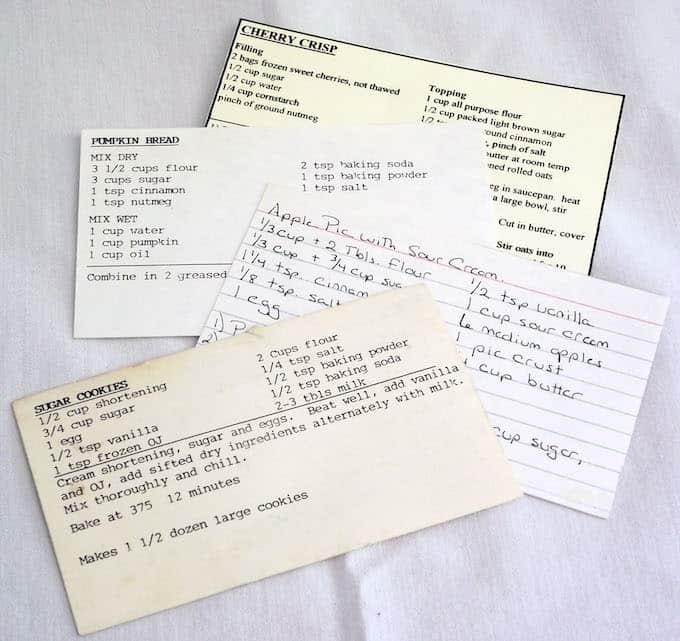 CHERRY CRISP
Filling
2 bags frozen sweet cherries, not thawed
1/2 cup sugar
1/2 cup water
1/4 cup cornstarch
pinch of ground nutmeg
Topping
1 cup all purpose flour
1/2 cup packed light brown sugar
ground cinnamon
pinch of salt
butter at room temp
rolled oats
in saucepan. heat
a large bowl, stir
Cut in butter, cover
Stir oats into
PUMPKIN BREAD
MIX DRY
3 1/2 cups flour
3 cups sugar
1 tsp cinnamon
1 tsp nutmeg
2 tsp baking soda
1 tsp baking powder
1 tsp salt
MIX WET
1 cup water
1 cup pumpkin
1 cup oil
Combine in 2 greased
Apple Pie with Sour Cream
1/3 cup + 2 Tbls. flour
1/3 cup + 3/4 cup
1 1/4 tsp.
1/8 tsp. salt
1 egg
1)
2)
1/2 tsp vanilla
1 cup sour cream
6 medium apples
1 pie crust
cup butter
cup sugar,
SUGAR COOKIES
1/2 cup shortening
3/4 cup sugar
1 egg
1/2 tsp vanilla
1 tsp frozen OJ
2 Cups flour
1/4 tsp salt
1/2 tsp baking powder
1/2 tsp baking soda
2-3 tbls milk
Cream shortening, sugar and eggs. Beat well, add vanilla
and OJ, add sifted dry ingredients alternately with milk.
Mix thoroughly and chill.
Bake at 375 12 minutes
Makes 1 1/2 dozen large cookies